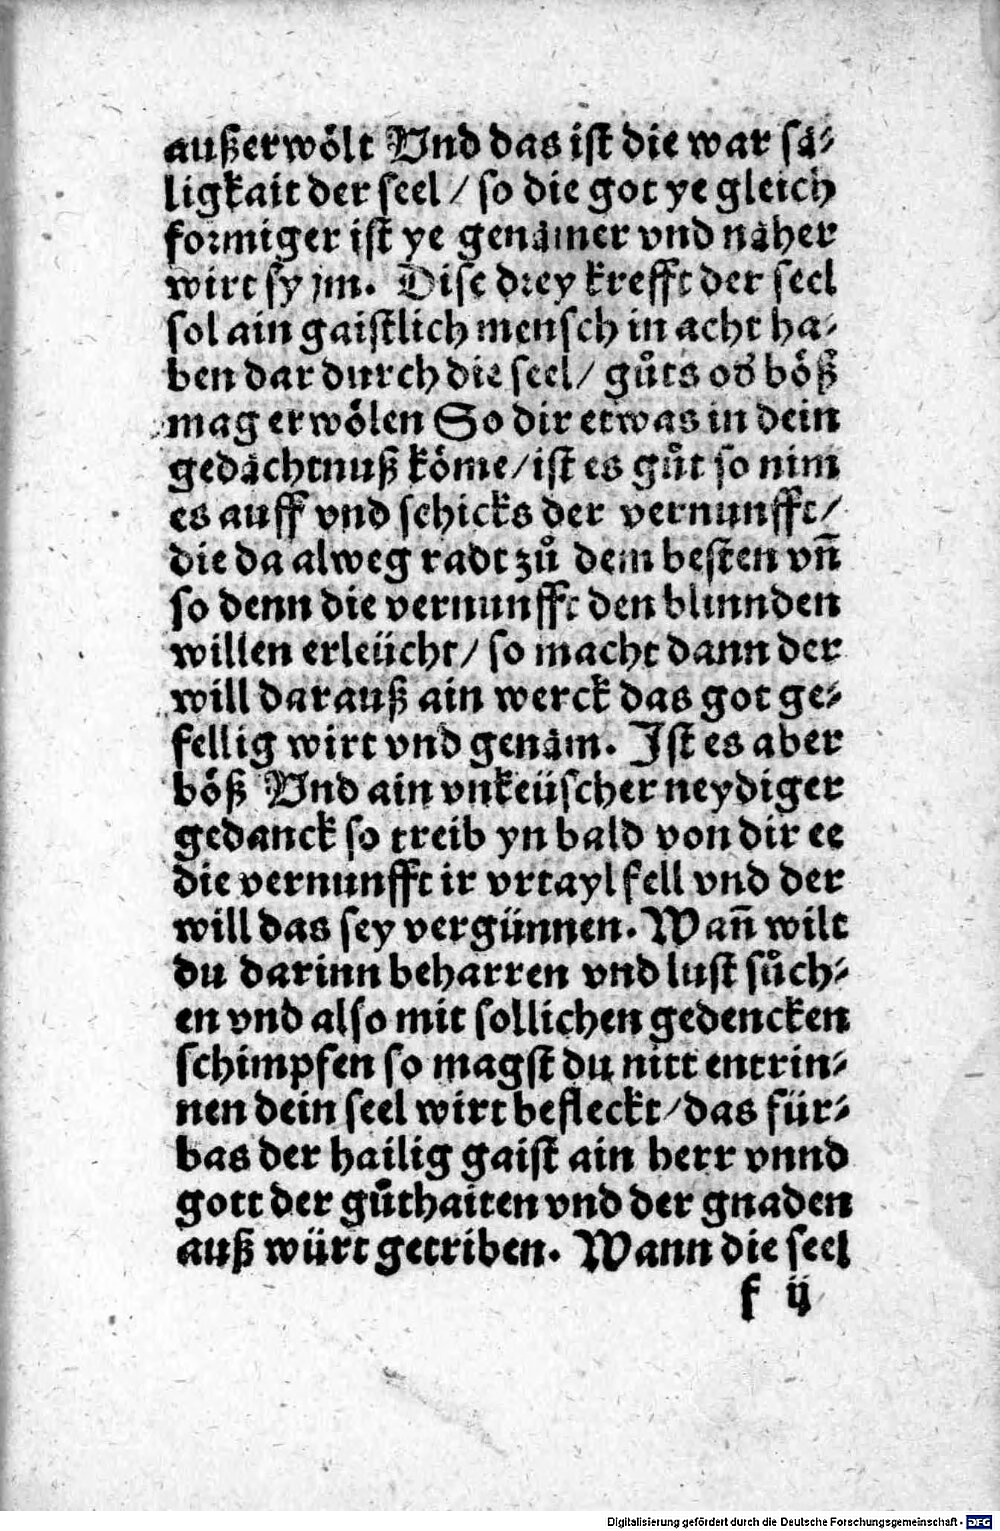 außerwoͤlt Vnd das ist die war saͤ-
ligkait der seel / so die got ye gleich
formiger ist ye genaͤmer vnd naͤher
wirt sy jm. Dise drey krefft der seel
sol ain gaistlich mensch in acht ha-
ben dar durch die seel / guͦts od̕ boͤß
mag erwoͤlen So dir etwas in dein
gedaͤchtnuß koͤme / ist es guͦt so nim
es auff vnd schicks der vernunfft /
die da alweg radt zuͦ dem besten vn̄
so denn die vernunfft den blinnden
willen erleücht / so macht dann der
will darauß ain werck das got ge-
fellig wirt vnd genaͤm. Ist es aber
boͤß Vnd ain vnkeüscher neydiger
gedanck so treib yn bald von dir ee
die vernunfft ir vrtayl fell vnd der
will das sey vergünnen. Wan̄ wilt
du darinn beharren vnd lust suͦch-
en vnd also mit sollichen gedencken
schimpfen so magst du nitt entrin-
nen dein seel wirt befleckt / das für-
bas der hailig gaist ain herr vnnd
gott der guͦthaiten vnd der gnaden
auß würt getriben. Wann die seel
f ij
Digitalisierung gefördert durch die Deutsche Forschungsgemeinschaft - DFG